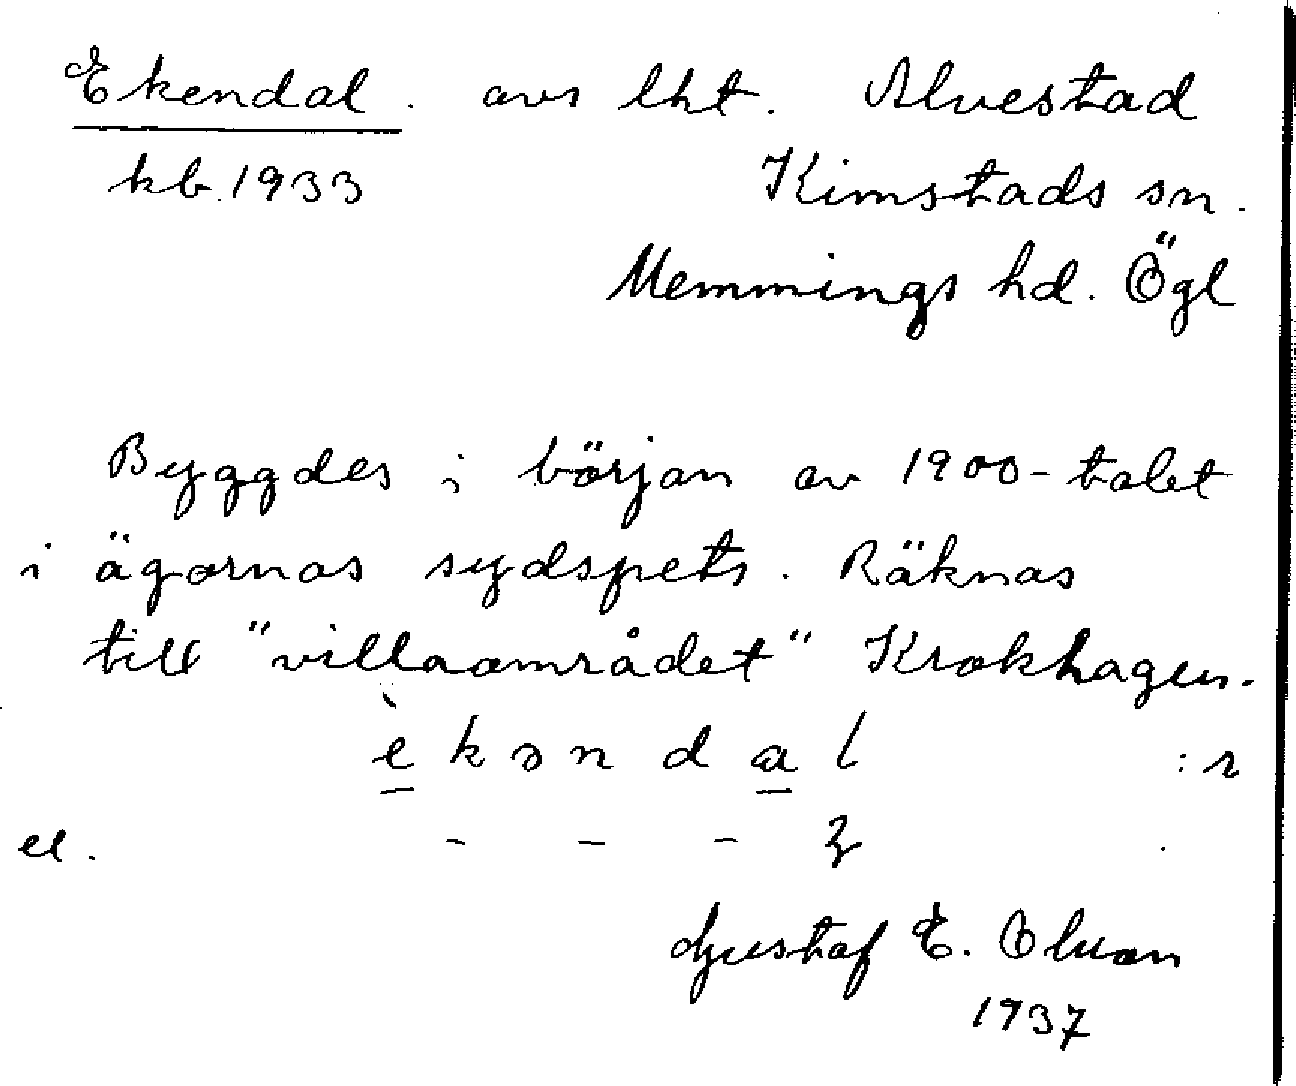 Ekendal. avs lht. Alvestad
kb. 1933 Kimstads sn.
Memmings hd. Ögl
Byggdes i början av 1900-talet
i ägornas sydspets. Räknas
till "villaområdet" Krokhagen.
è k ə n d a l : r
el. - - - 
Gustaf E. Elvan
1937